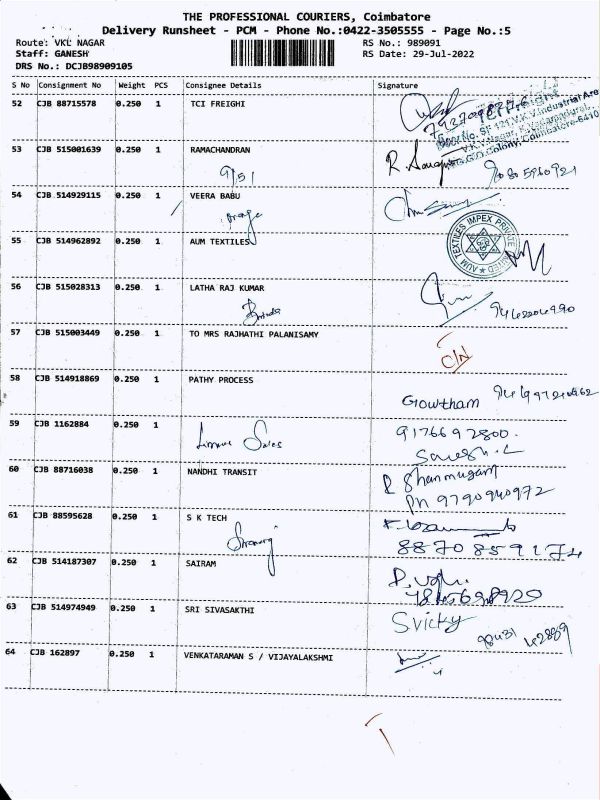 THE PROFESSIONAL COURIERS, Coimbatore
Delivery Runsheet - PCM - Phone No.:0422-3505555 - Page No.:5
Route: VKL NAGAR RS No.: 989091
Staff: GANESH RS Date: 29-Jul-2022
DRS No.: DCJB98909105
S No Consignment No Weight PCS Consignee Details Signature
52 CJB 88715578 0.250 1 TCI FREIGHI
53 CJB 515001639 0.250 1 RAMACHANDRAN
9/51
54 CJB 514929115 0.250 1 VEERA BABU
55 CJB 514962892 0.250 1 AUM TEXTILES
AUM TEXTILES IMPEX PRIVATE LIMITED
56 CJB 515028313 0.250 1 LATHA RAJ KUMAR
57 CJB 515003449 0.250 1 TO MRS RAJHATHI PALANISAMY
C/N
58 CJB 514918869 0.250 1 PATHY PROCESS
Gowtham
59 CJB 1162884 0.250 1 9176692800.
Sales
60 CJB 88716038 0.250 1 NANDHI TRANSIT R Shanmugam
PN 9790940972
61 CJB 88595628 0.250 1 S K TECH
8870859174
62 CJB 514187307 0.250 1 SAIRAM
63 CJB 514974949 0.250 1 SRI SIVASAKTHI Svicky
64 CJB 162897 0.250 1 VENKATARAMAN S / VIJAYALAKSHMI